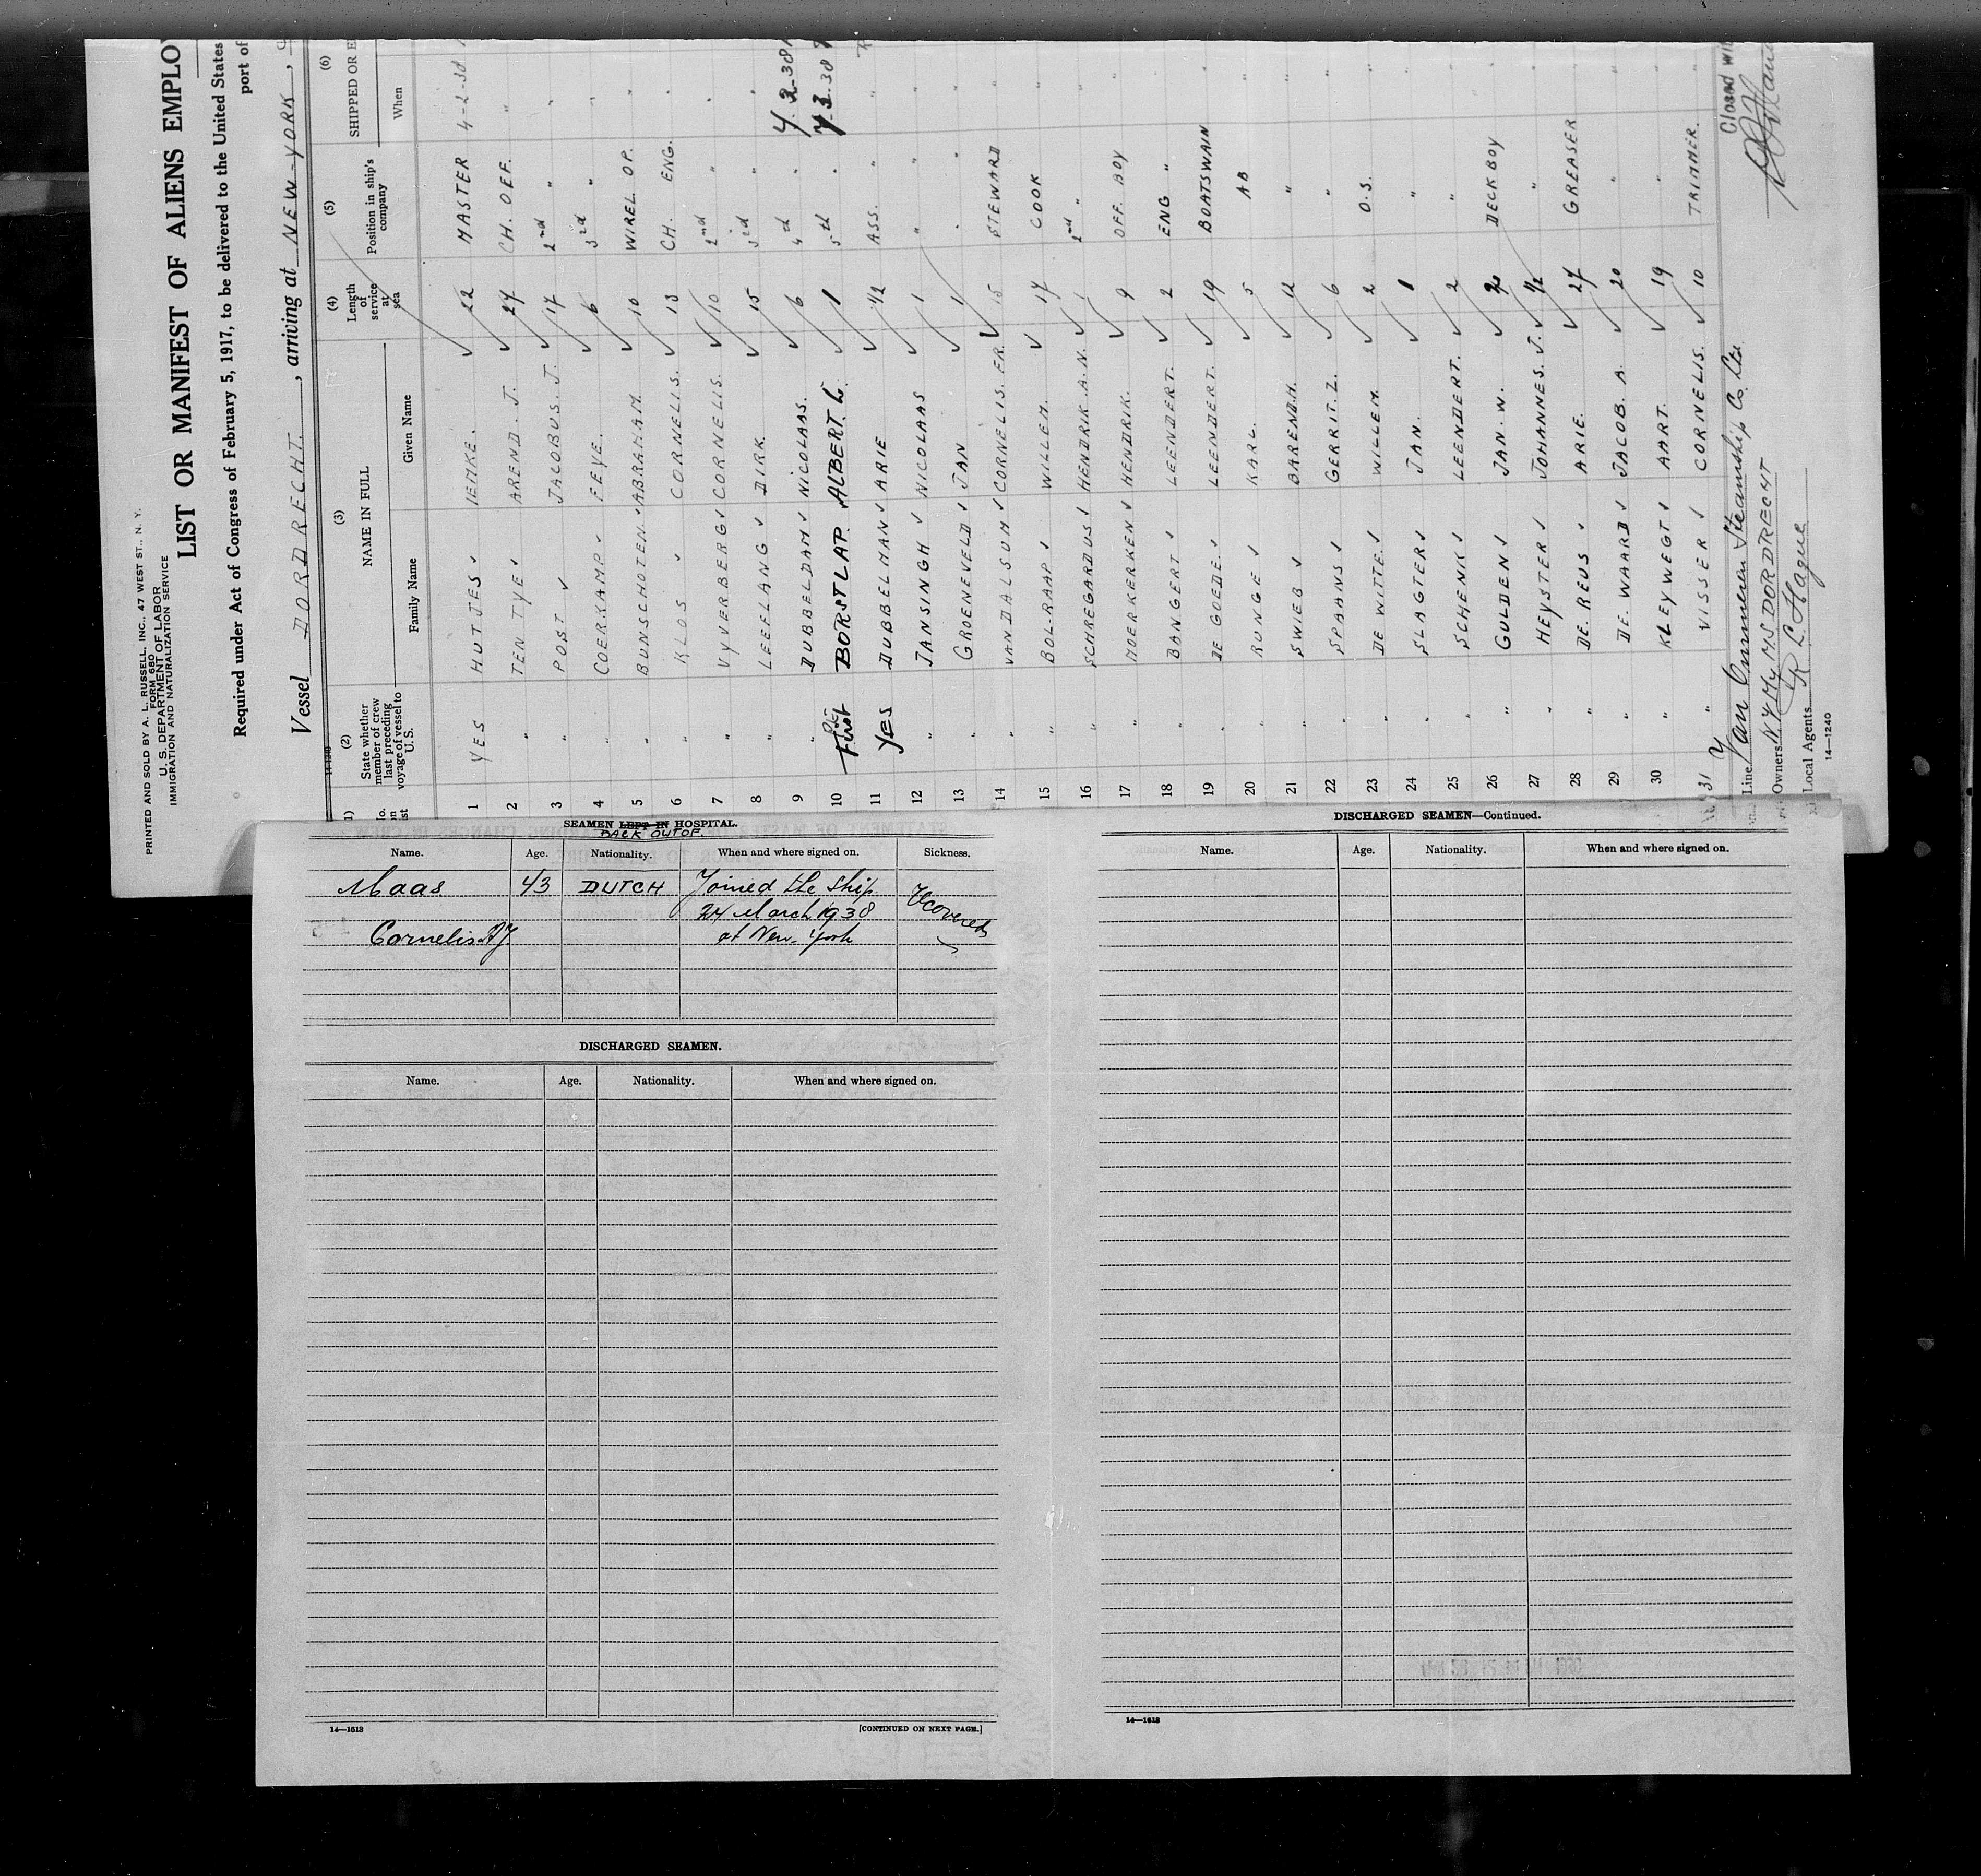 PRINTED AND SOLD BY A. L. RUSSELL, INC., 47 WEST ST., N. Y.
FORM 680
U. S. DEPARTMENT OF LABOR
IMMIGRATION AND NATURALIZATION SERVICE
LIST OR MANIFEST OF ALIENS EMPLO
Required under Act of Congress of February 5, 1917, to be delivered to the United States
port of
Vessel DORDRECHT. , arriving at NEW-YORK ,
14-1240
(2) (3) (4) (5) (6)
State whether member of crew last preceding voyage of vessel to U.S. NAME IN FULL Length of service at sea Position in ship's company SHIPPED OR E
Family Name Given Name When
YES 1 HUTJES IEMKE. 22 MASTER 4-2-38
" 2 TEN TYE AREND. J. 27 CH. OFF. "
" 3 POST JACOBUS. J. 17 2nd " "
" 4 COERKAMP FEYE. 6 3rd " "
" 5 BUNSCHOTEN ABRAHAM. 10 WIREL. OP. "
" 6 KLOS CORNELIS. 13 CH. ENG. "
" 7 VYVERBERG CORNELIS. 10 2nd " "
" 8 LEEFLANG DIRK. 15 3rd " "
" 9 DUBBELDAM NICOLAAS. 6 4th "
First 10 BORSTLAP ALBERT. L. 1 5th "
Yes 11 DUBBELMAN ARIE 1/2 ASS. " "
" 12 JANSINGH NICOLAAS 1 " " "
" 13 GROENEVELD JAN 1 " " "
" 14 VAN DALSUM CORNELIS. FR. 15 STEWARD "
" 15 BOL-RAAP WILLEM. 17 COOK "
" 16 SCHREGARDUS HENDRIK A.N. 1 2nd " "
" 17 MOERKERKEN HENDRIK. 9 OFF. BOY "
" 18 BANGERT LEENDERT. 2 ENG " "
" 19 DE GOEDE. LEENDERT. 19 BOATSWAIN "
" 20 RUNGE KARL. 5 AB "
" 21 SWIEB BAREND.H. 12 " "
" 22 SPAANS GERRIT. Z. 6 " "
" 23 DE WITTE. WILLEM. 2 O.S. "
" 24 SLAGTER JAN. 1 " "
" 25 SCHENK LEENDERT. 2 " "
" 26 GULDEN JAN. W. DECKBOY "
" 27 HEYSTER JOHANNES. J. 1/2 " "
" 28 DE. REUS ARIE. 27 GREASER "
" 29 DE. WAARD JACOB. A. 20 " "
" 30 KLEYWEGT AART. 19 " "
" 31 VISSER CORNELIS. 10 TRIMMER. "
Line Van Ommeren Steamship Co. Ltd
Owners N.V. My MS DORDRECHT
Local Agents R L Hague
14—1240
Closed wi
SEAMEN LEFT IN HOSPITAL.
BACK OUT OF.
Name. Age. Nationality. When and where signed on. Sickness.
Maas 43 DUTCH Joined the ship
24 March 1938
Cornelis A J at New-York
DISCHARGED SEAMEN.
Name. Age. Nationality. When and where signed on.
14—1613 [CONTINUED ON NEXT PAGE.]
DISCHARGED SEAMEN—Continued.
Name. Age. Nationality. When and where signed on.
14—1613